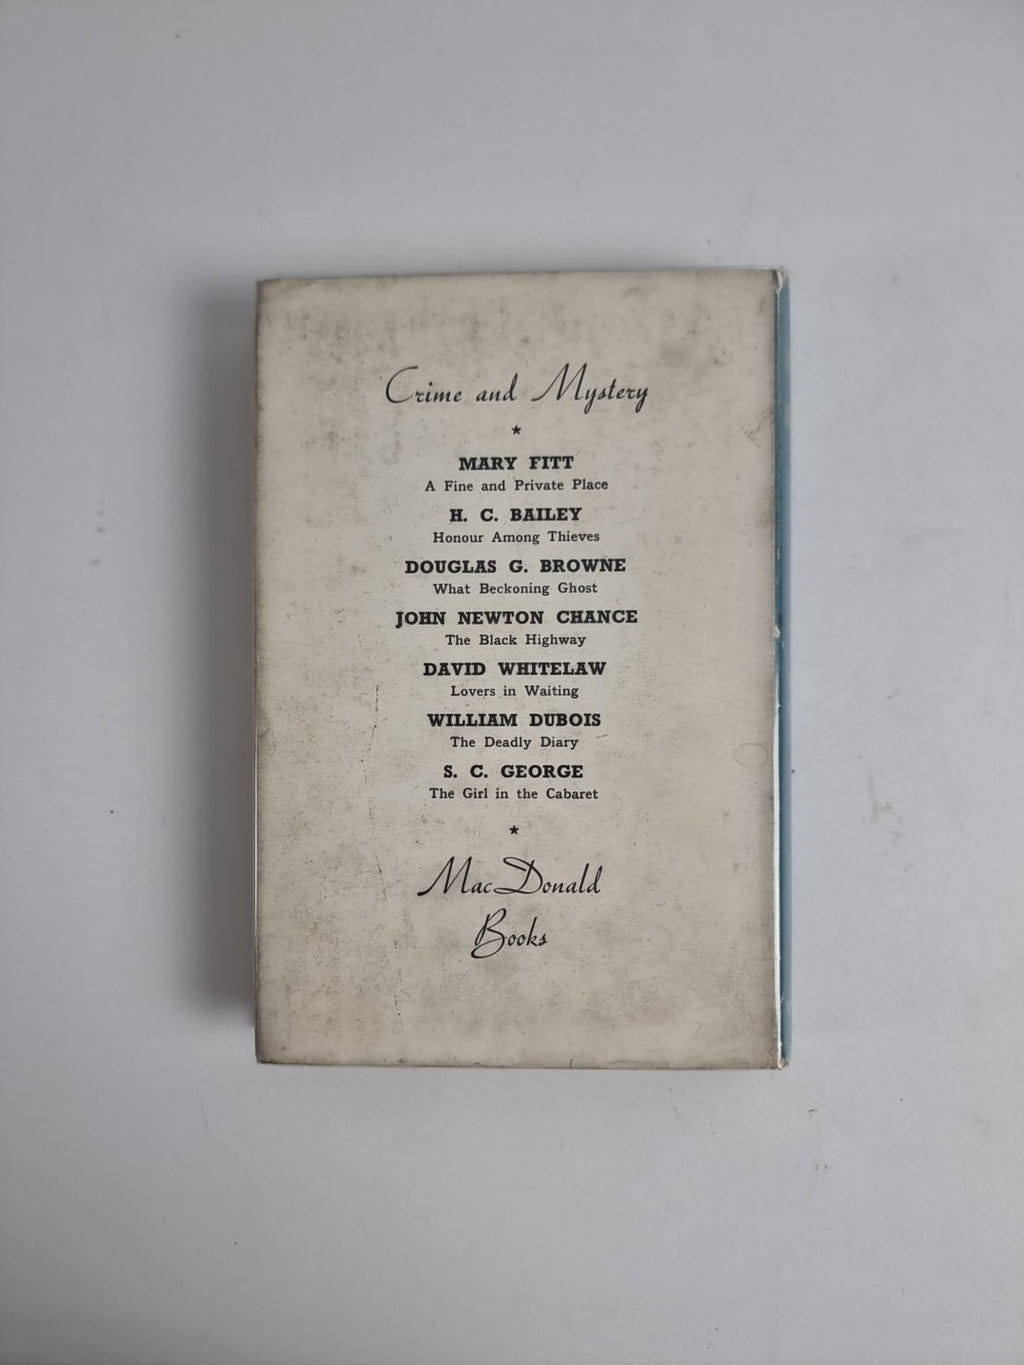 Crime and Mystery
★
MARY FITT
A Fine and Private Place
H. C. BAILEY
Honour Among Thieves
DOUGLAS G. BROWNE
What Beckoning Ghost
JOHN NEWTON CHANCE
The Black Highway
DAVID WHITELAW
Lovers in Waiting
WILLIAM DUBOIS
The Deadly Diary
S. C. GEORGE
The Girl in the Cabaret
★
MacDonald
Books